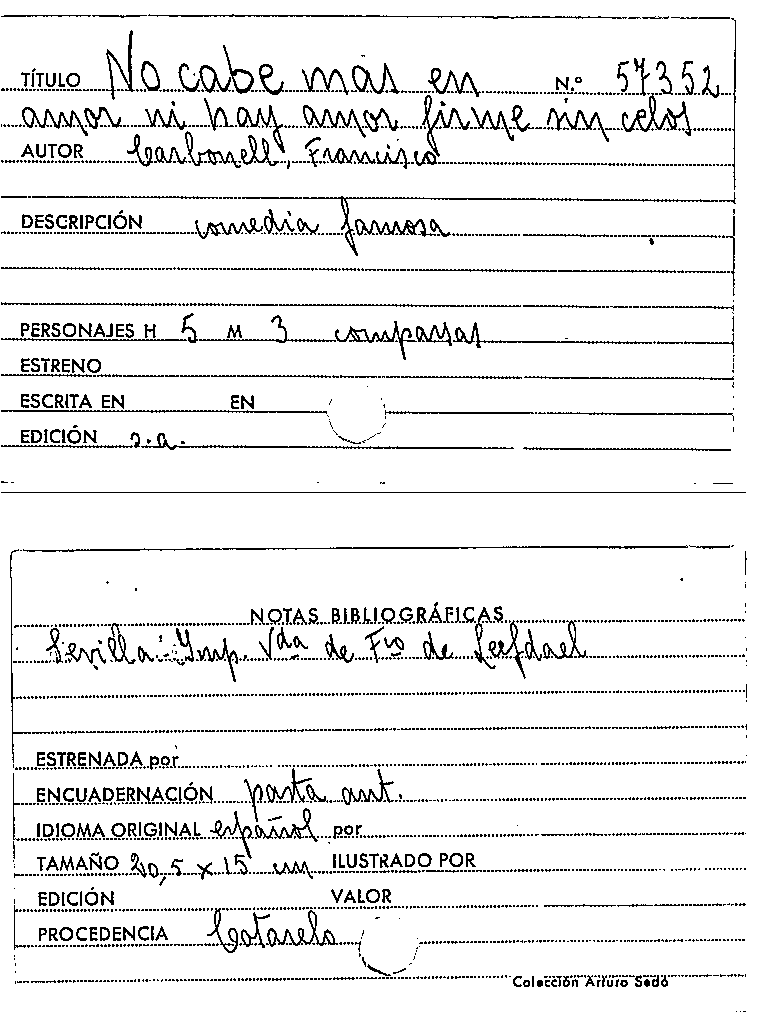 TÍTULO No cabe más en N.º 57352
amor ni hay amor firme sin celos
AUTOR Carbonell, Francisco
DESCRIPCIÓN comedia famosa
PERSONAJES H 5 M 3 comparsas
ESTRENO
ESCRITA EN EN
EDICIÓN s.a.
NOTAS BIBLIOGRÁFICAS
Sevilla: Imp. Vda de Fco de Leefdael
ESTRENADA por
ENCUADERNACIÓN pasta ant.
IDIOMA ORIGINAL español por
TAMAÑO 20,5 x 15 cm ILUSTRADO POR
EDICIÓN VALOR
PROCEDENCIA Cotarelo
Colección Arturo Sedó